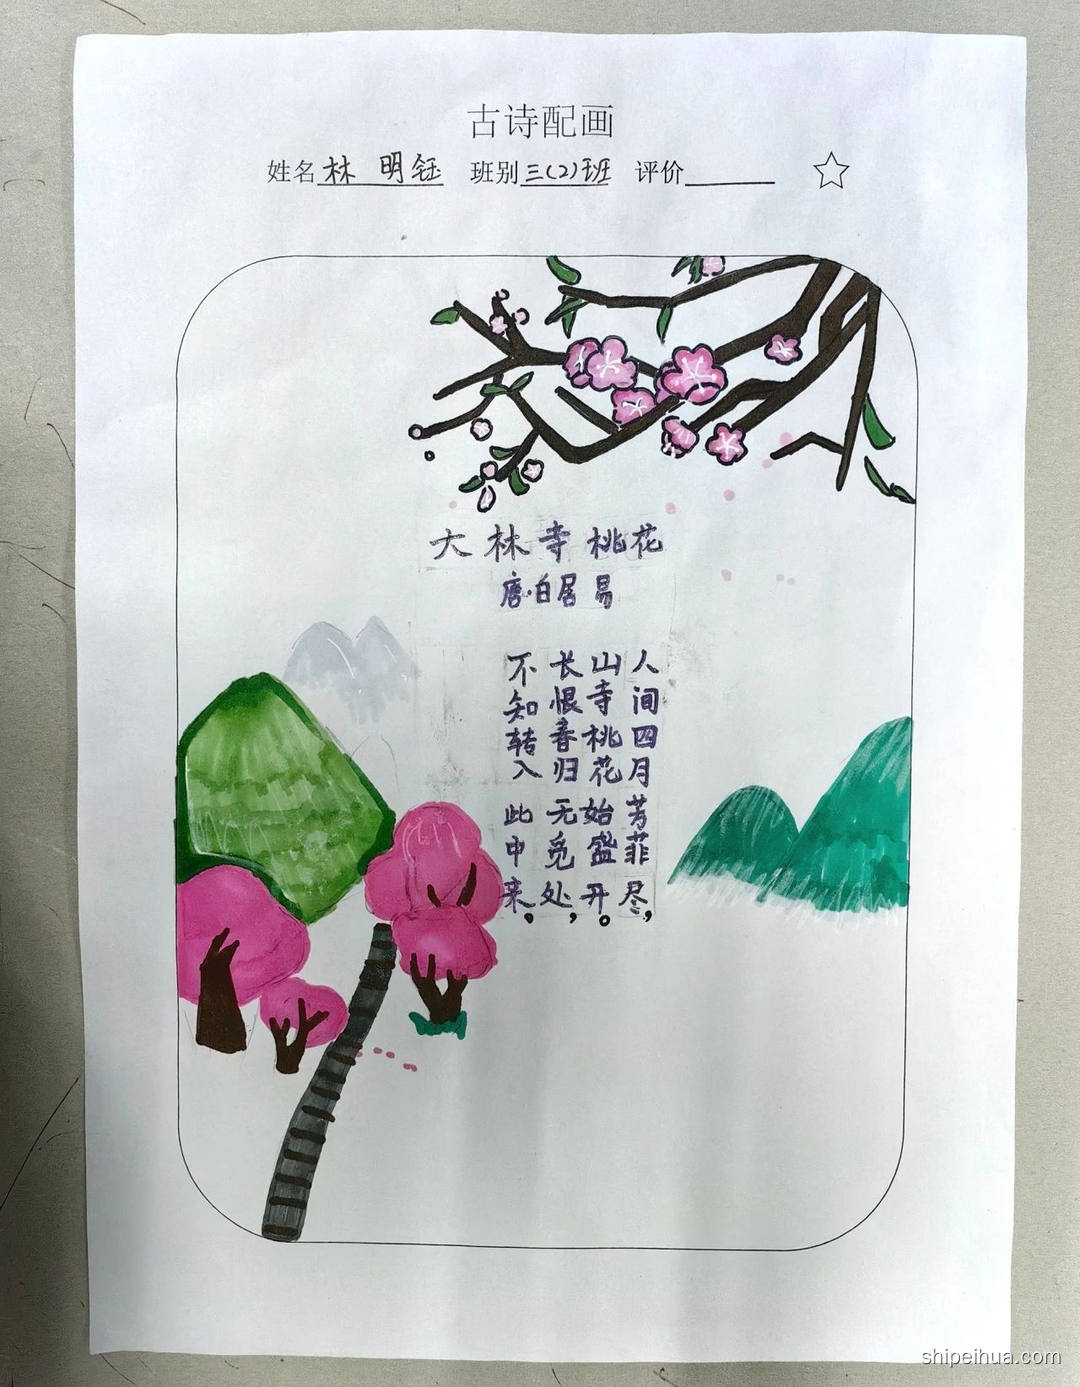 古诗配画
姓名林 明钰 班别三(2)班 评价
大林寺桃花
唐·白居易
人间四月芳菲尽，
山寺桃花始盛开。
长恨春归无觅处，
不知转入此中来。
shipeihua.com